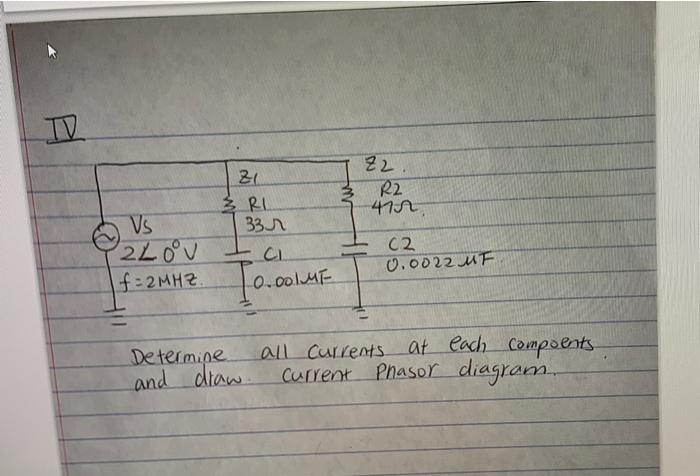 IV
Z1
R1
33Ω
C1
0.001μF
Z2.
R2
47Ω.
C2
0.0022 μF
Vs
2∠0°V
f=2MHZ.
Determine all currents at each compoents
and draw. Current Phasor diagram.